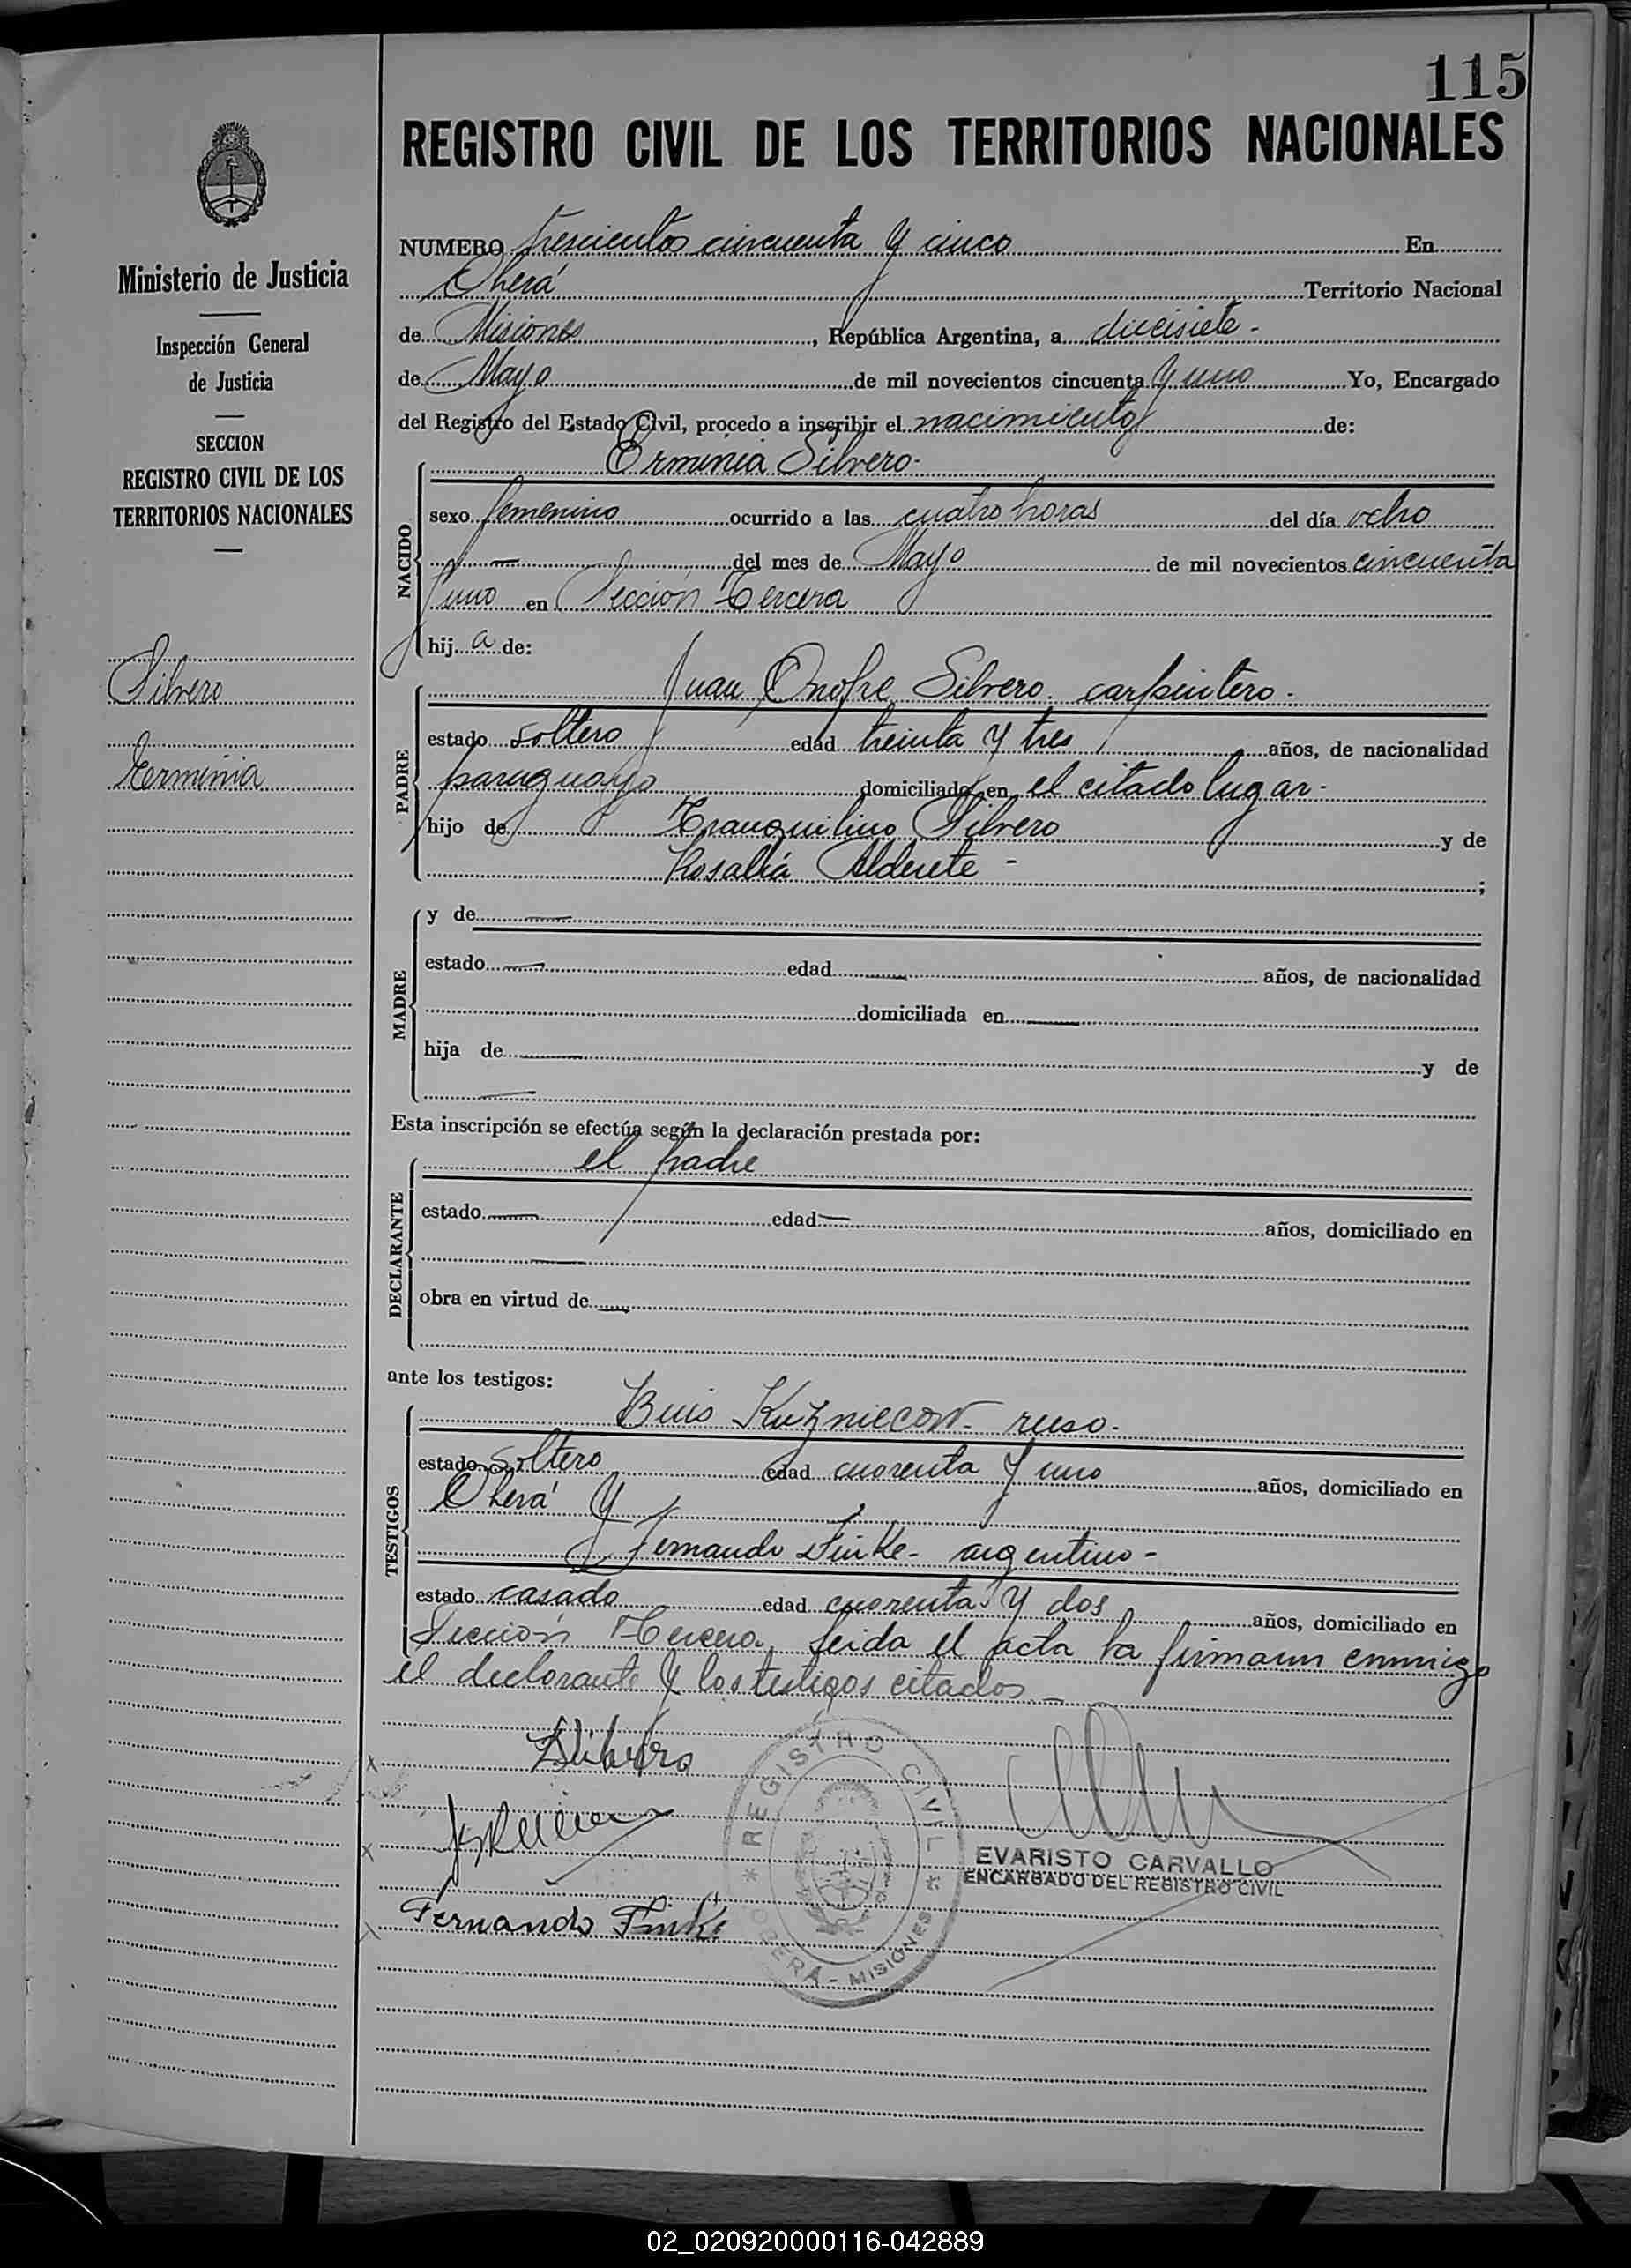 115
REGISTRO CIVIL DE LOS TERRITORIOS NACIONALES
Ministerio de Justicia
Inspección General
de Justicia
SECCION
REGISTRO CIVIL DE LOS
TERRITORIOS NACIONALES
Silvero
Erminia
NUMERO trescientos cincuenta y cinco En
Oberá Territorio Nacional
de Misiones, República Argentina, a diecisiete -
de Mayo de mil novecientos cincuenta y uno Yo, Encargado
del Registro del Estado Civil, procedo a inscribir el nacimiento de:
NACIDO
Erminia Silvero.
sexo femenino ocurrido a las cuatro horas del día ocho
— del mes de Mayo de mil novecientos cincuenta
y uno en Sección Tercera
hij a de:
PADRE
Juan Onofre Silvero. carpintero.
estado soltero edad treinta y tres años, de nacionalidad
paraguayo domiciliado en el citado lugar.
hijo de Tranquilino Silvero y de
Rosalía Alderete - ;
MADRE
y de —
estado — edad — años, de nacionalidad
domiciliada en —
hija de — y de
—
Esta inscripción se efectúa según la declaración prestada por:
DECLARANTE
el padre
estado — edad — años, domiciliado en
—
obra en virtud de —
ante los testigos:
TESTIGOS
Luis Kuzniecow. ruso.
estado soltero edad cuarenta y uno años, domiciliado en
Oberá y
Fernando Finke - argentino -
estado casado edad cuarenta y dos años, domiciliado en
Sección Tercera. Leida el acta la firman conmigo
el declarante y los testigos citados -
Silvero
Fernando Finke
REGISTRO CIVIL
OBERÁ - MISIONES
EVARISTO CARVALLO
ENCARGADO DEL REGISTRO CIVIL
02_020920000116-042889